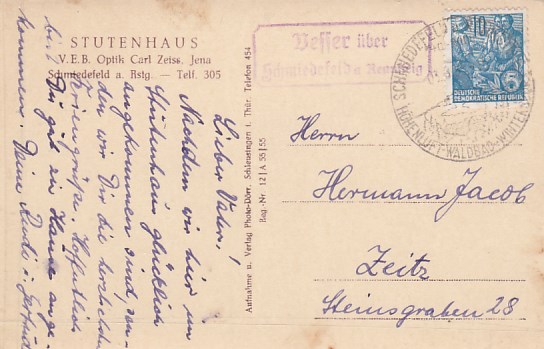 STUTENHAUS
V.E.B. Optik Carl Zeiss, Jena
Schmiedefeld a. Rstg. — Telf. 305
Lieber Vater!
Nachdem wir hier im
Stutenhaus glücklich
angekommen sind, sen-
den wir Dir die herzlichsten
Feriengrüße. Hoffentlich
bist Du gut zu Hause ange-
kommen. Deine Rudi u. Gertrud
Aufnahme u. Verlag Photo-Dörr, Schleusingen i. Thür. Telefon 454
Reg.-Nr. 12|A 55|55
Vesser über
Schmiedefeld a Rennstg
10
5
DEUTSCHE
DEMOKRATISCHE REPUBLIK
SCHMIEDEFELD
HÖHENLUFT-WALDBAD-WINTERSPORT
Herrn
Hermann Jacob
Zeitz
Steinsgraben 28